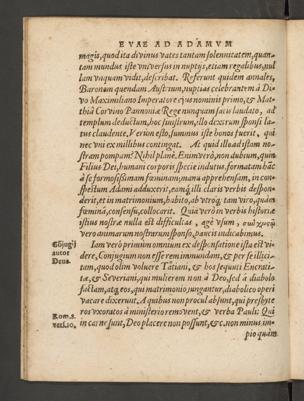 EVAE AD ADAMVM
magis, quod ita diuinus vates tantam solennitatem, quan-
tam mundus iste vniuersus in nuptijs, etiam regalibus, nul
lam vnquam vidit, describat. Referunt quidem annales,
Baronum quendam Austrium, nuptias celebrantem à Di
vo Maximiliano Imperatore ejus nominis primo, & Mat-
thia Corvino Pannoniæ Rege nunquam satis laudato, ad
templum deductum, hoc sinistrum, illo dextrum sponsi la-
tus claudente. Verùm esto, summus iste honos fuerit, qui
nec vni ex millibus contingat. At quid illo ad istam no-
stram pompam? Nihil planè. Enimverò, non dubium, quin
Filius Dei, humani corporis specie indutus, formatam hanc
à se formosissimam fœminam, manu apprehensam, in con-
spectum Adami adduxerit, eamq́; illi claris verbis despon-
derit, et in matrimonium, habito, ab vtroq; tam viro, quàm
fœmina, consensu, collocarit. Quia verò in verbis historiæ
istius nostræ nulla est difficultas, agè
vero animarum nostrarum sponso, paucis indicabimus.
Iam verò primum omnium ex desponsatione ista est vi-
dere, Conjugium non esse rem immundam, & per se illici-
tam, quod olim voluere Tatiani, & hos sequuti Encrati-
tæ, & Severiani, qui mulierem non à Deo, sed à diabolo
factam, atq; eos, qui matrimonio jungantur, diabolico operi
vacare dixerunt. A quibus non procul absunt, qui presbyte
ros vxoratos à ministerio removent, & verba Pauli: Qui
in carne sunt, Deo placere non possunt, &c. non minus im-
pio quàm
Cōjugij
autor
Deus.
Rom. 8.
vers. 10.